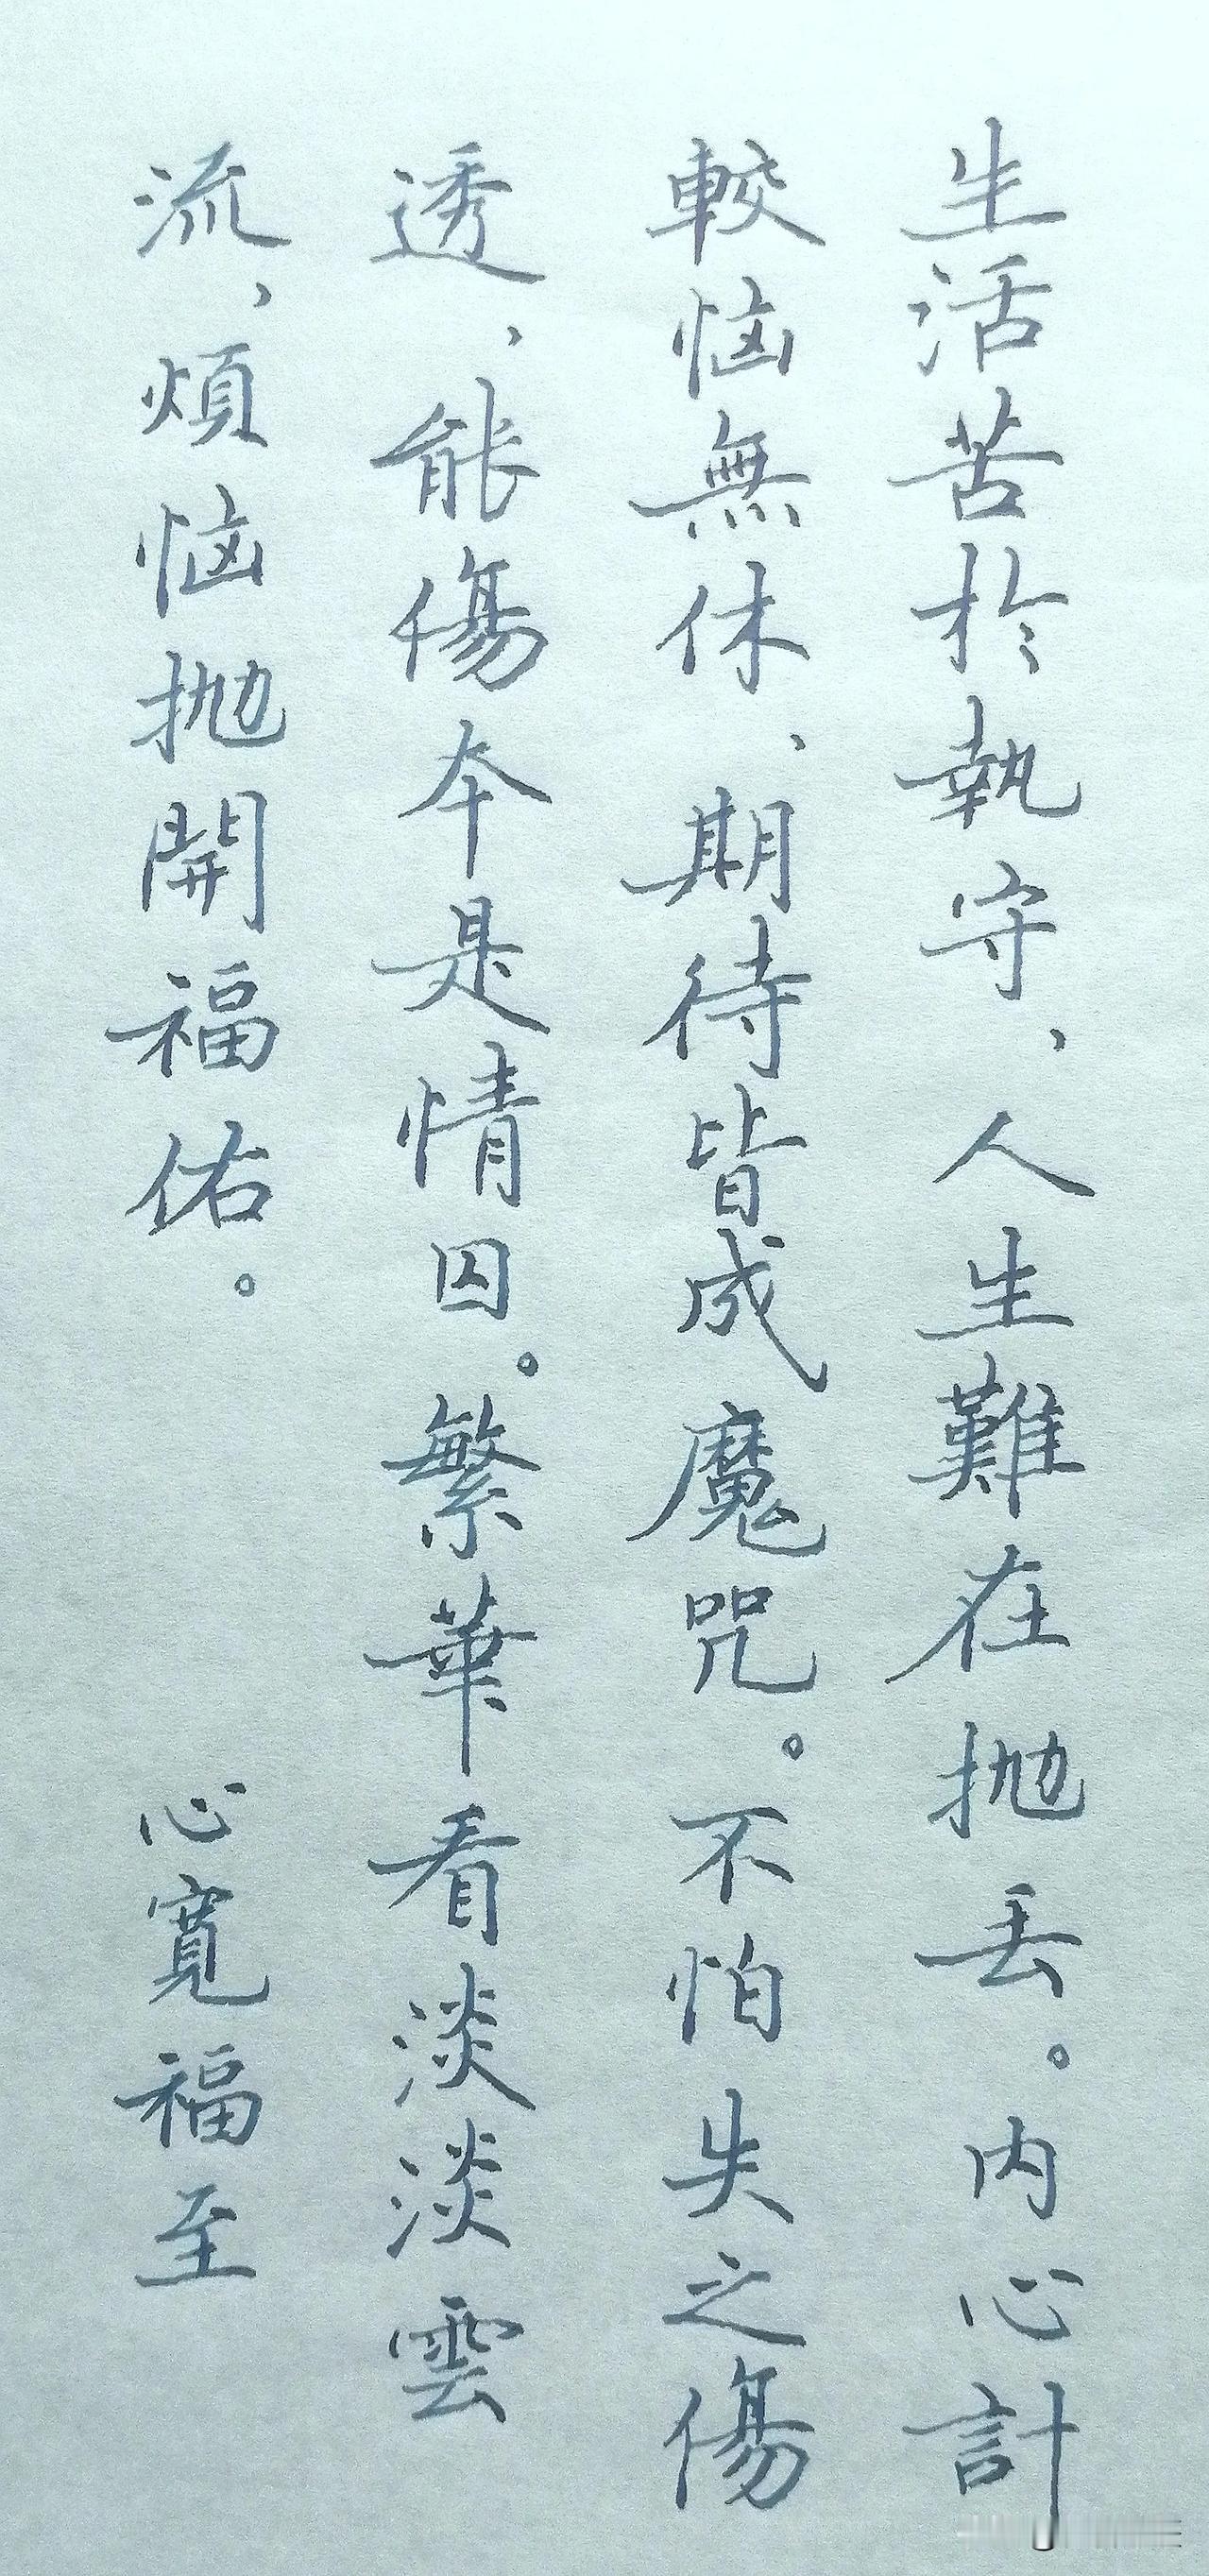 生活苦於執守、人生難在抛丢。内心計
較恼無休、期待皆成魔咒。不怕失之傷
透、能傷本是情囚。繁華看淡淡雲
流、煩恼抛開福佑。
心寬福至